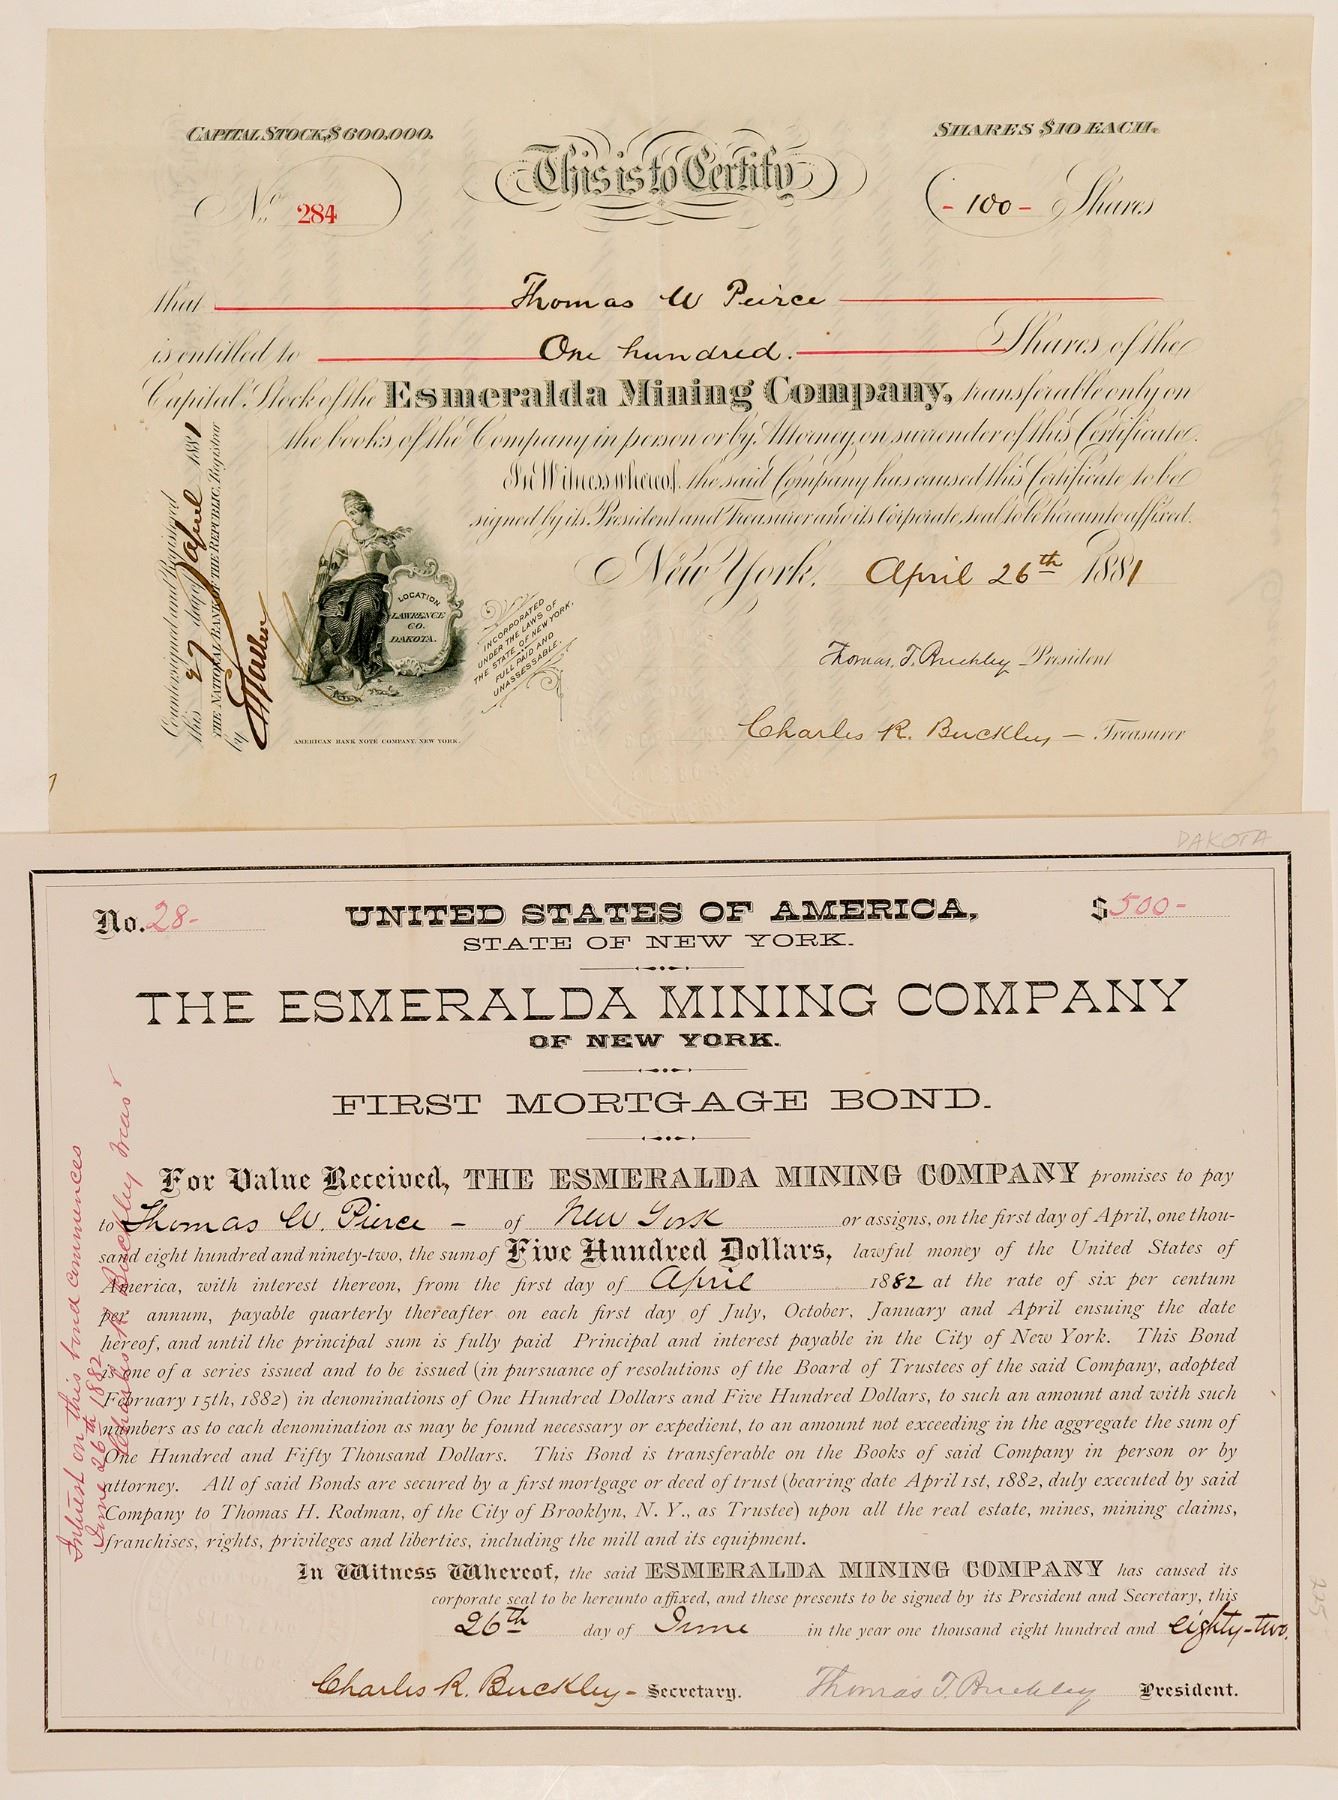 CAPITAL STOCK, $600,000.
SHARES $10 EACH.
This is to Certify
No. 284
- 100 - Shares
that Thomas W Peirce
is entitled to One hundred. Shares of the
Capital Stock of the Esmeralda Mining Company, transferable only on
the books of the Company in person or by Attorney, on surrender of this Certificate.
In Witness whereof, the said Company has caused this Certificate to be
signed by its President and Treasurer and its Corporate Seal to be hereunto affixed.
New York, April 26th 1881
Countersigned and Registered
this 27 day of April 1881
THE NATIONAL BANK OF THE REPUBLIC, Registrar
by
LOCATION
LAWRENCE
CO.
DAKOTA.
INCORPORATED
UNDER THE LAWS OF
THE STATE OF NEW YORK.
FULL PAID AND
UNASSESSABLE.
Thomas T. Buckley President
Charles R. Buckley - Treasurer
AMERICAN BANK NOTE COMPANY, NEW YORK.
DAKOTA
No. 28-
UNITED STATES OF AMERICA,
$500-
STATE OF NEW YORK.
THE ESMERALDA MINING COMPANY
OF NEW YORK.
FIRST MORTGAGE BOND.
For Value Received, THE ESMERALDA MINING COMPANY promises to pay
to Thomas W. Pierce - of New York or assigns, on the first day of April, one thou-
sand eight hundred and ninety-two, the sum of Five Hundred Dollars, lawful money of the United States of
America, with interest thereon, from the first day of April 1882 at the rate of six per centum
per annum, payable quarterly thereafter on each first day of July, October, January and April ensuing the date
hereof, and until the principal sum is fully paid Principal and interest payable in the City of New York. This Bond
is one of a series issued and to be issued (in pursuance of resolutions of the Board of Trustees of the said Company, adopted
February 15th, 1882) in denominations of One Hundred Dollars and Five Hundred Dollars, to such an amount and with such
numbers as to each denomination as may be found necessary or expedient, to an amount not exceeding in the aggregate the sum of
One Hundred and Fifty Thousand Dollars. This Bond is transferable on the Books of said Company in person or by
attorney. All of said Bonds are secured by a first mortgage or deed of trust (bearing date April 1st, 1882, duly executed by said
Company to Thomas H. Rodman, of the City of Brooklyn, N. Y., as Trustee) upon all the real estate, mines, mining claims,
franchises, rights, privileges and liberties, including the mill and its equipment.
In Witness Whereof, the said ESMERALDA MINING COMPANY has caused its
corporate seal to be hereunto affixed, and these presents to be signed by its President and Secretary, this
26th day of June in the year one thousand eight hundred and eighty-two.
Charles R. Buckley - Secretary. Thomas T. Buckley President.
Interest on this bond commences
June 26th 1882
Charles R Buckley Treasr
225